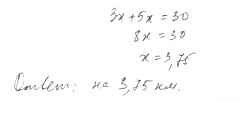 3x+5x=30
8x=30
x=3,75
Ответ: на 3,75 км.